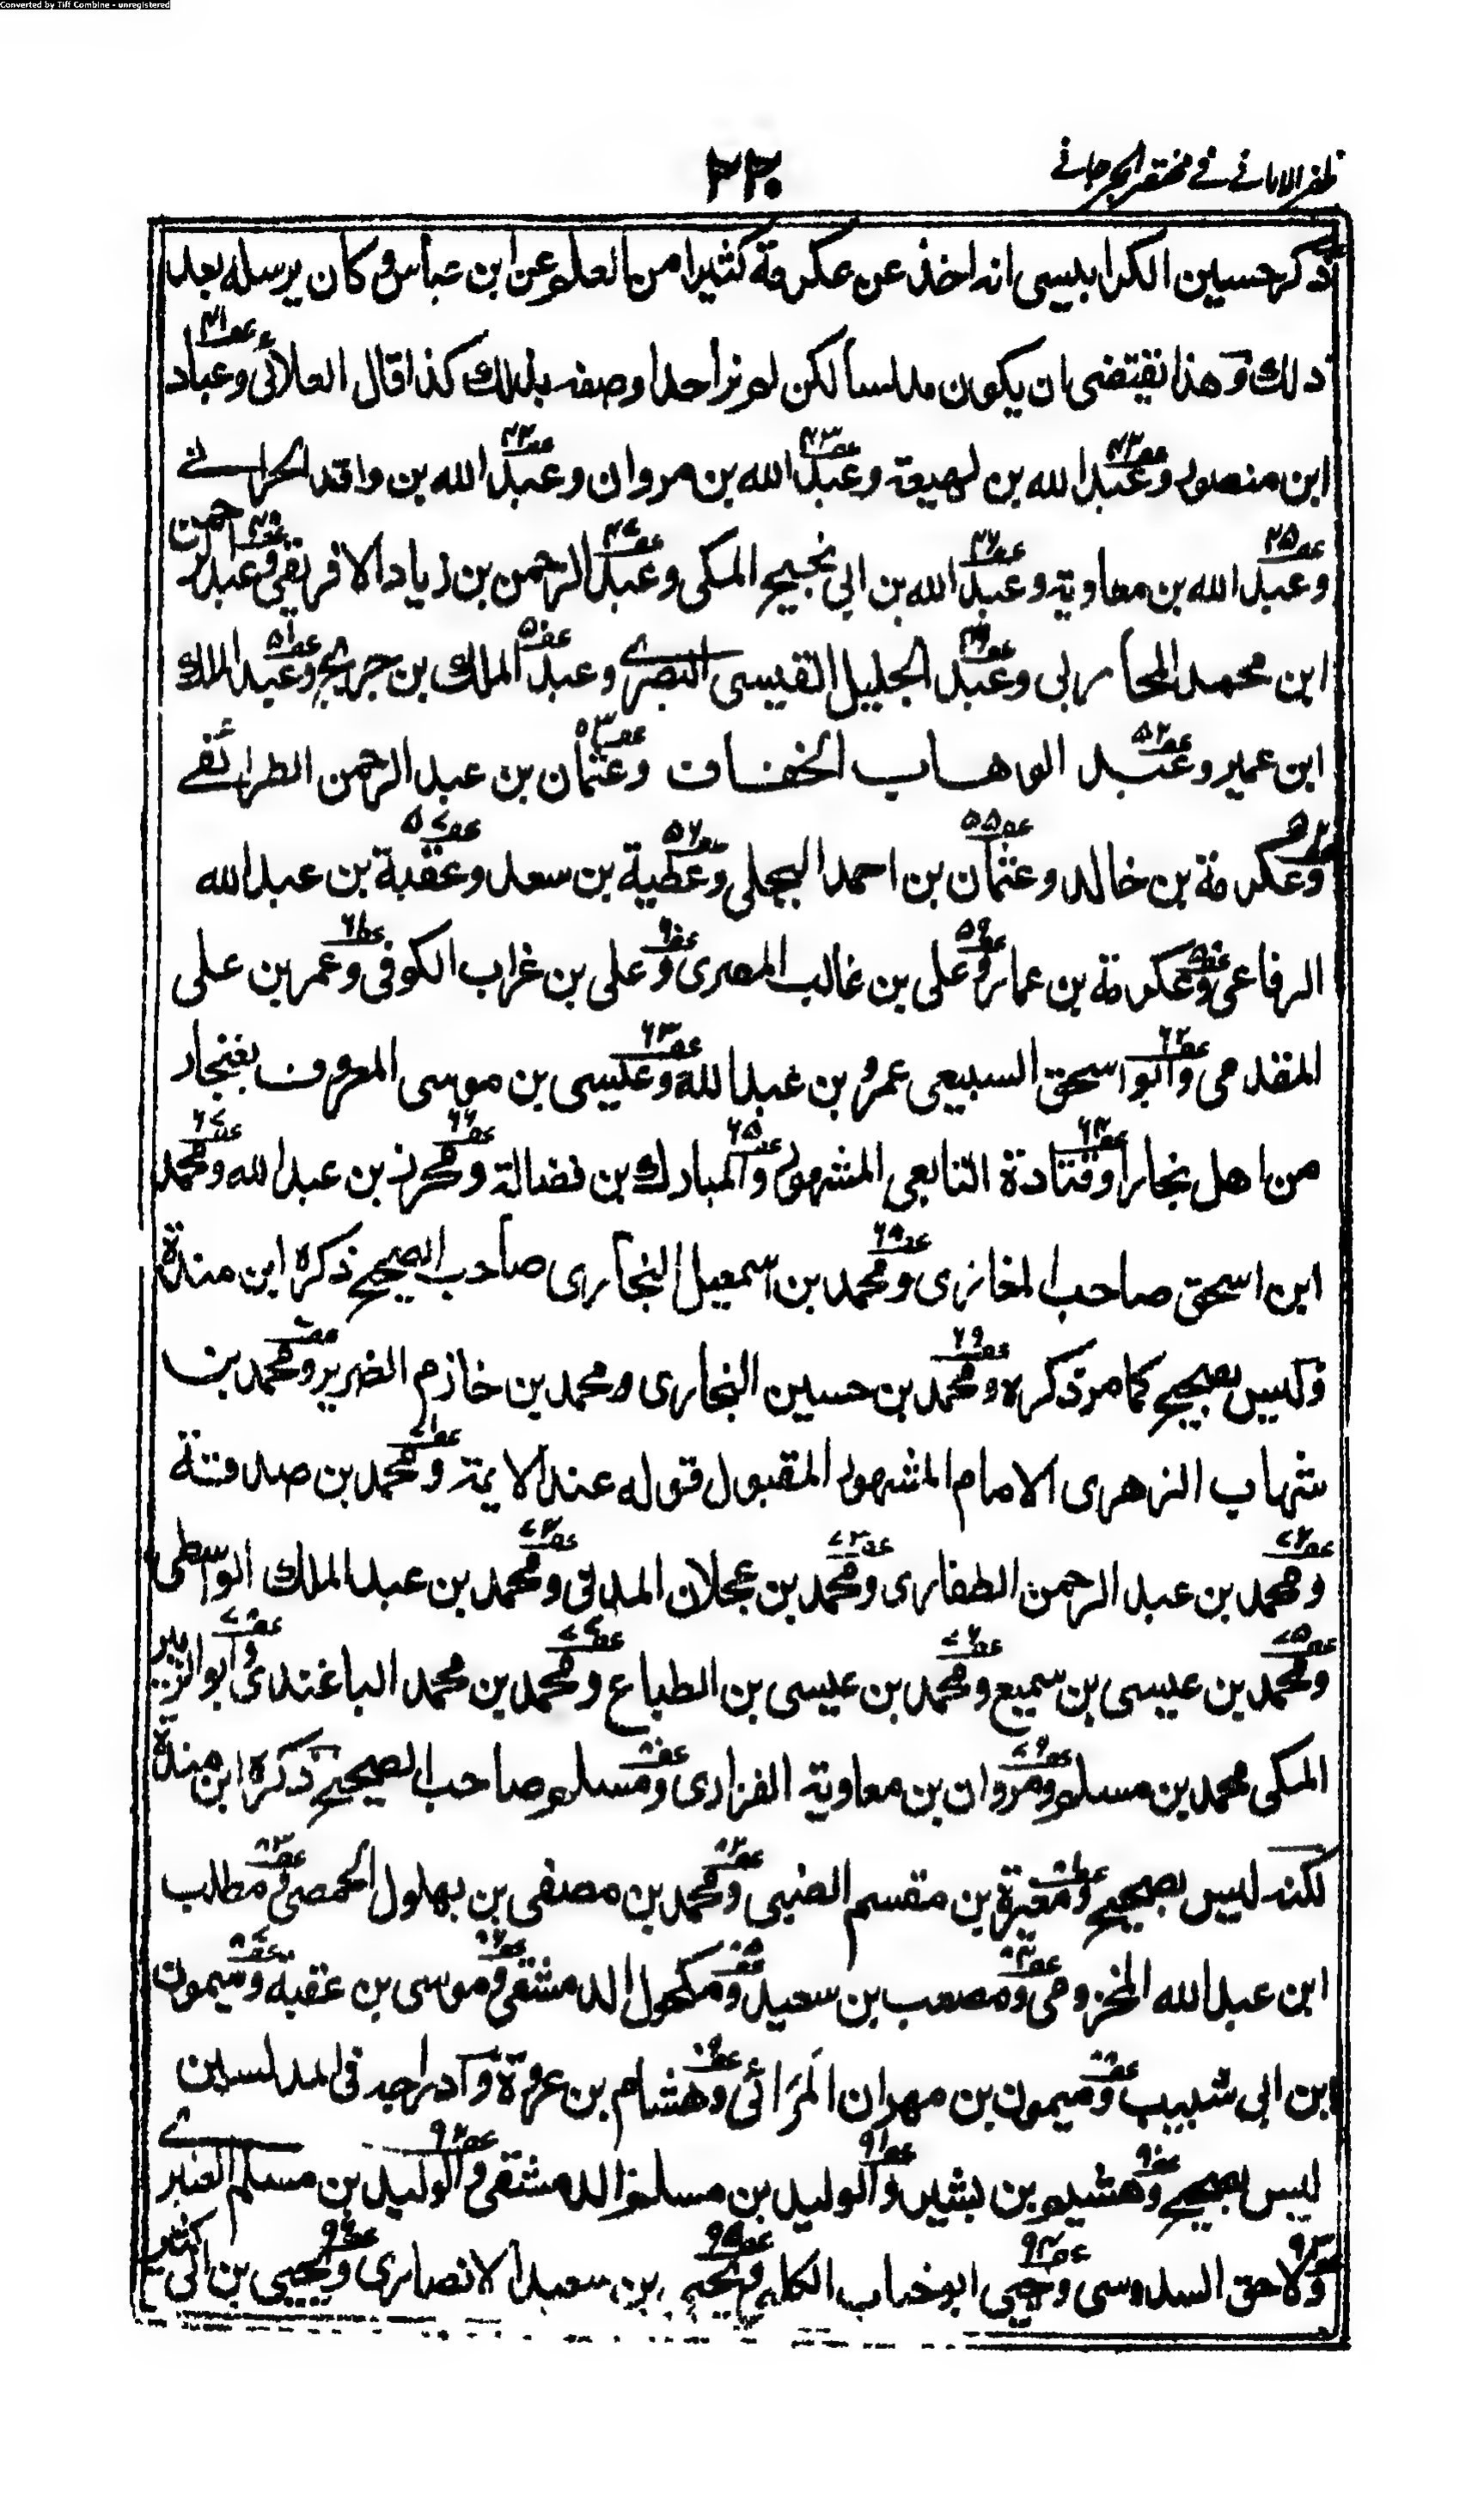 Converted by Tiff Combine - unregistered
ظفر الامانے فے مختصر الجرجانے
۲۲۰
ذكر حسين الكرابيسى انه اخذ عن عكرمة كثيرا من العلم عن ابن عباس و كان يرسله بعد
ذلك وهذا يقتضى ان يكون مدلسا لكن لم نر احدا وصفه بذلك كذا قال العلائى وعباد
ابن منصور وعبد الله بن لهيعة وعبد الله بن مروان وعبد الله بن واقد الحرانے
وعبد الله بن معاوية وعبد الله بن ابى نجيح المكى وعبد الرحمن بن زياد الافريقى وعبد الرحمن
ابن محمد المحاربى وعبد الجليل القيسى البصرے وعبد الملك بن جريج وعبد الملك
ابن عمير وعبد الوهاب الخفاف وعثمان بن عبد الرحمن الطرائفے
وعكرمة بن خالد وعثمان بن احمد البجلى وعطية بن سعد وعقبة بن عبد الله
الرفاعى وعكرمة بن عمار وعلى بن غالب المصرى وعلى بن غراب الكوفى وعمر بن على
المقدمى وابو اسحق السبيعى عمرو بن عبد الله وعيسى بن موسى المعروف بغنجار
من اهل بخارا وقتادة التابعى المشهور والمبارك بن فضالة ومحرز بن عبد الله ومحمد
ابن اسحق صاحب المغازى ومحمد بن اسمعيل البخارى صاحب الصحيح ذكره ابن مندة
وليس بصحيح كما مر ذكره ومحمد بن حسين البخارى ومحمد بن خازم الضرير ومحمد بن
شهاب الزهرى الامام المشهور المقبول قوله عند الايمة ومحمد بن صدقة
ومحمد بن عبد الرحمن الطفارى ومحمد بن عجلان المدنى ومحمد بن عبد الملك الواسطى
ومحمد بن عيسى بن سميع ومحمد بن عيسى بن الطباع ومحمد بن محمد الباغندى وابو الزبير
المكى محمد بن مسلم ومروان بن معاوية الفزارى ومسلم صاحب الصحيح ذكره ابن مندة
لكنه ليس بصحيح ومغيرة بن مقسم الضبى ومحمد بن مصفى بن بهلول الحمصى ومطلب
ابن عبد الله المخزومى ومصعب بن سعيد ومكحول الدمشقى وموسى بن عقبة وميمون
ابن ابى شبيب وميمون بن مهران المَرَائى وهشام بن عروة وادراجه فى المدلسين
ليس بصحيح وهشيم بن بشير والوليد بن مسلم الدمشقى والوليد بن مسلم العنبرے
ولاحق السدوسى ويحيى ابو خباب الكلبى ويحيى بن سعيد الانصارى ويحيى بن ابى كثير